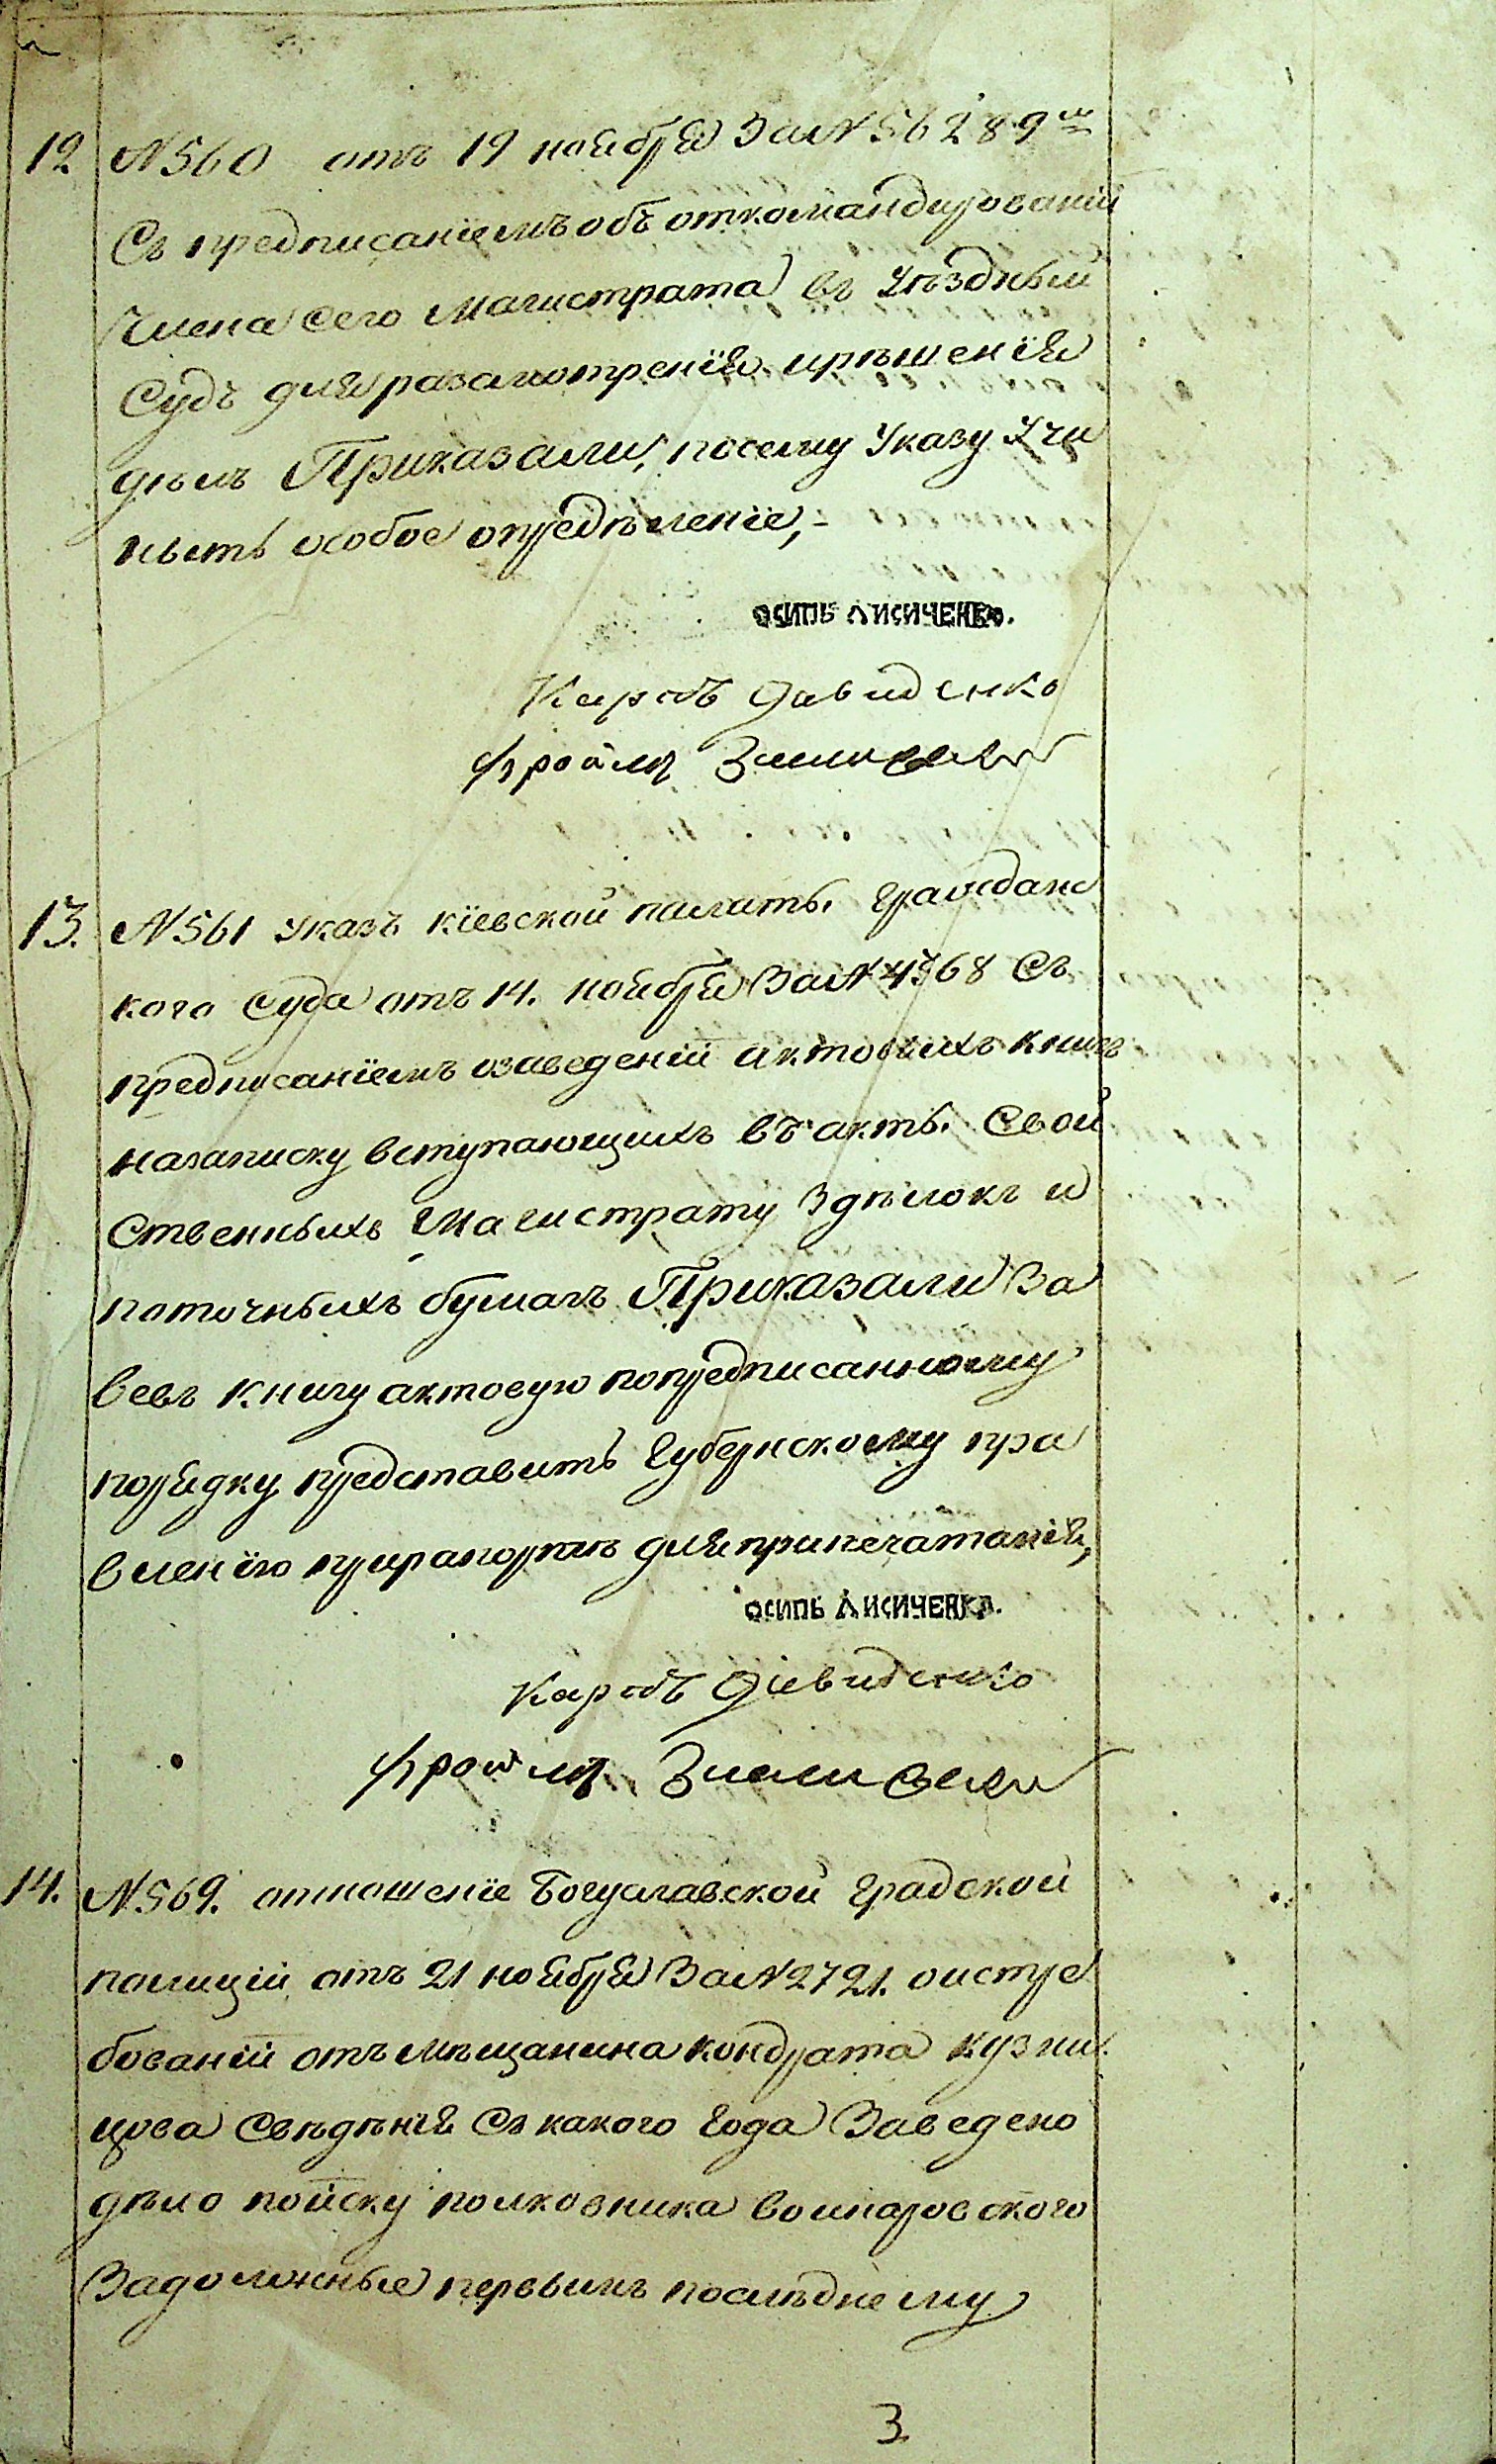 12 № 560 отъ 19 ноября За № 56289 мъ
Съ предписаніемъ объ откомандированіи
Члена сего Магистрата въ Уѣздный
Судъ для разсмотренія и рѣшенія
дѣлъ Приказали, по сему Указу Учи
ныть особое опредѣленіе,-
ОСИПЬ ЛИСИЧЕНКО.
Карпъ Давиденко
Фроимъ
13. № 561 Указъ Кіевской палаты. Гражданс
кого Суда отъ 14. ноября За № 4768 Съ
предписаніемъ о заведеніи актовыхъ книгъ
на записку вступающихъ въ акты. Свой
ственныхъ Магистрату Здѣлокъ и
поточныхъ бумагъ Приказали За
вевъ книгу актовую по предписанному
порядку представить Губернскому пра
вленію при рапортѣ для припечатанія,
ОСИПЬ ЛИСИЧЕНКО.
Карпъ Давиденко
Фроимъ
14. № 569. отношеніе Богуславской Градской
полиціи отъ 21 ноября За № 2721. о истре
бованіи отъ мѣщанина Кондрата Кузни
цова Свѣдѣнія Съ какого Года Заведено
дѣло по иску полковника Воинаровского
За должные первымъ последнему
3